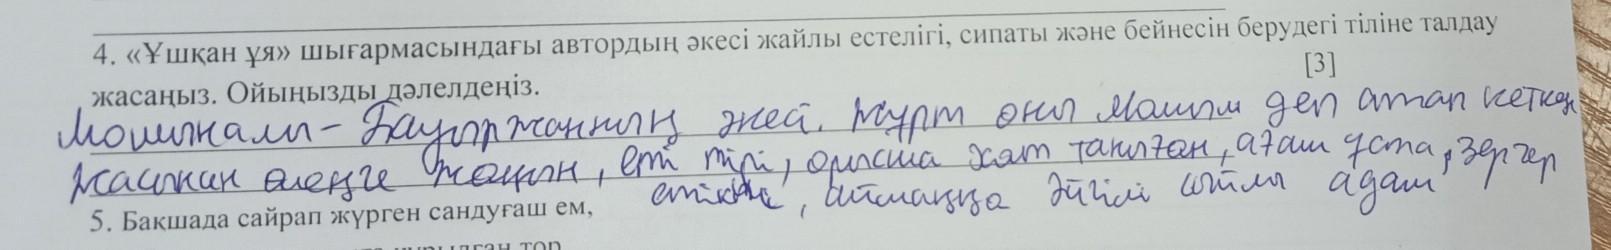 4. «Ұшқан ұя» шығармасындағы автордың әкесі жайлы естелігі, сипаты және бейнесін берудегі тіліне талдау
жасаңыз. Ойыңызды дәлелдеңіз.
[3]
Момышәлі - Бауыржанның әкесі. Жұрт оны Момыш деп атап кеткен
Жасынан өлеңге жақын, еті тірі, орысша хат таныған, ағаш ұста, зергер
етікші, аймаққа әйгілі адам
5. Бақшада сайрап жүрген сандуғаш ем,